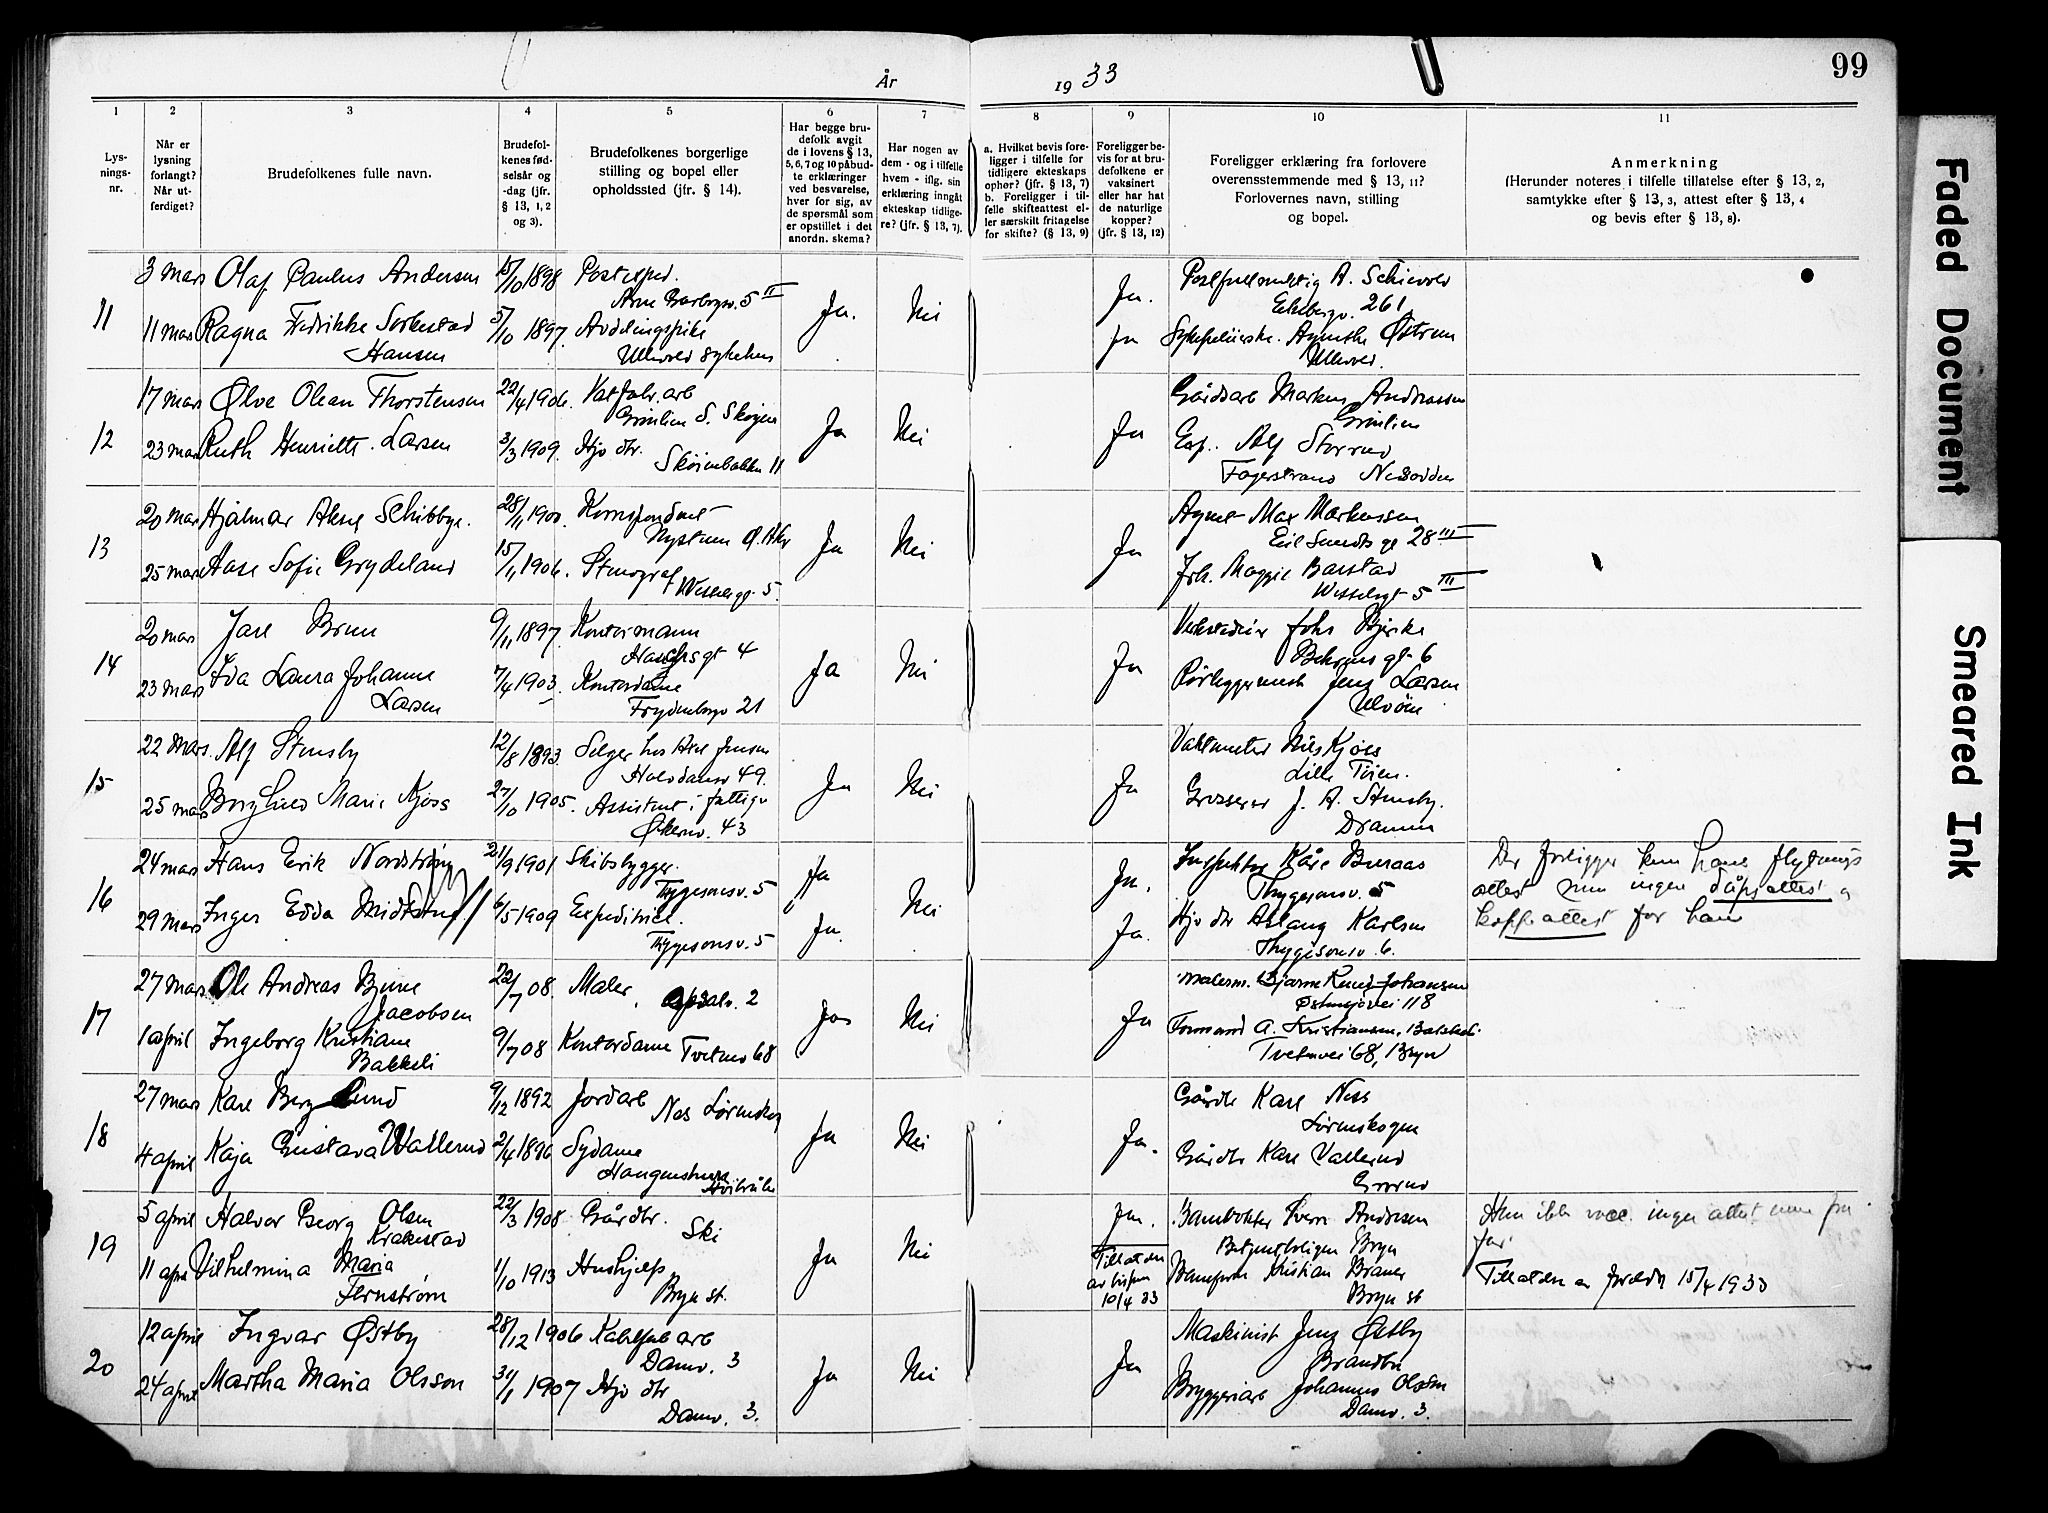 År 1933
99
1 2 3 4 5 6 7 8 9 10 11
Lysningsnr.
Når er lysning forlangt? Når utferdiget?
Brudefolkenes fulle navn.
Brudefolkenes fødselsår og -dag (jfr. § 13, 1, 2 og 3).
Brudefolkenes borgerlige stilling og bopel eller opholdssted (jfr. § 14).
Har begge brudefolk avgit de i lovens § 13, 5, 6, 7 og 10 påbudte erklæringer ved besvarelse, hver for sig, av de spørsmål som er opstillet i det anordn. skema?
Har nogen av dem - og i tilfelle hvem - iflg. sin erklæring inngått ekteskap tidligere? (jfr. § 13, 7).
a. Hvilket bevis foreligger i tilfelle for tidligere ekteskaps ophør? (jfr. § 13, 7) b. Foreligger i tilfelle skifteattest eller særskilt fritagelse for skifte? (§ 13, 9)
Foreligger bevis for at brudefolkene er vaksinert eller har hat de naturlige kopper? (jfr. § 13, 12)
Foreligger erklæring fra forlovere overensstemmende med § 13, 11? Forlovernes navn, stilling og bopel.
Anmerkning
(Herunder noteres i tilfelle tillatelse efter § 13, 2, samtykke efter § 13, 3, attest efter § 13, 4 og bevis efter § 13, 8).
11
3 mars Olaf Paulus Andersen 15/10 1898 Postexped. Arne Barbyv. 5 II
Ja. Nei Ja.
A. Schievold
Ekebergv. 261
11 mars Ragna Fredrikke Sorkestad Hansen 5/10 1897. Avdelingspike Ullevål sykehus
Ja Sykepleierske. Agnethe Østrem
Ullevål.
12
17 mars Ølve Olean Thorstensen 22/4 1906. Grinilien S. Skøyen
Ja Nei Ja
Gårdsarb Markus Andreassen
Grinilien
23 mars Ruth Henriette Larsen 3/3 1909. Hjv dtr. Skøienbakken 11
Exp. Alf Storrud
Fagerstrand Nesodden
13
20 mars Hjalmar Aksel Schibbye. 28/11 1900. Korrespondent Nystuen Ø. Aker
Ja Nei Ja
Agent Max Markussen
Eil Sundts gt 28 III
25 mars Aase Sofie Grydeland 15/11 1906. Stenograf Wesselsgt 5.
Frk. Maggie Barstad
Wesselsgt 5 III
14
20 mars Jarl Bruu 9/11 1897 Kontormann gt 4
Ja Nei Ja
Johs Bjerke
Behrens gt 6
23 mars Ida Laura Johanne Larsen 7/4 1903. Kontordame Frydenbergv 21
Rørleggermest Jens Larsen
Ulvøen
15
22 mars. Alf Stensby 12/8 1893. Selger hos Axel Jensen Halvdansv 49.
Ja Nei Ja
Vaktmester Nils Kjøss
Lille Tøien.
25 mars Borghild Marie Kjøss 27/10 1905. Assistent i fattigv Økernv. 43
Grosserer J. A. Stensby.
Drammen
16
24 mars Hans Erik Nordstrøm 21/9 1901 Skibsbygger. Thygesonsv. 5
Ja Nei Ja.
Inspektør Kåre Buraas
Thygesonsv. 5
29 mars Inger Edda 6/5 1909 Expeditrice. Thygesonsv. 5
Ja. Ja.
Hjv dtr Aslaug Karlsen
Thygesonsv. 6.
Der foreligger kun hans flytnings
attest men ingen dåpsattest o
koppeattest for ham
17
27 mars Ole Andreas Bjune Jacobsen 22/7 08. Maler, Opsalv. 2
Ja Nei Ja
Malerm. Bjarne Knud Johansen
Østensjøvei 118
1 april Ingeborg Kristiane Bakkeli 9/7 08 Kontordame Tvetenv 68
Formand A. Kristiansen,
Tvetenvei 68, Bryn
18
27 mars Karl Berglund 9/12 1892 Jordarb Nes Lørenskog
Ja Nei Ja.
Gårdbr Karl Ness
Lørenskogen
4 april Kaja Gustava Wallerud 2/4 1896 Sydame Haugenstua Høibråten
Gårdbr Karl Vallerud
Grorud
19
5 april Halvor Georg Olsen Krakestad 22/3 1908 Gårdbr. Ski
Ja Nei Ja.
Banevokter Sverre Andersen
Betjentboligen Bryn
11 april Vilhelmina Maria Fernstrøm 1/10 1913 Hushjelp, Bryn st.
Tillatelse av bispen 10/4 33
Baneform Kristian Braner
Bryn st
Hun ikke vacc. ingen attest men fra
far.
Tillatelse av foreldr 15/4 1933
20
12 april Ingvar Østby 28/12 1906 Kabelfab arb Damv. 3
Ja Nei Ja
Maskinist Jens Østby
Brandbu
24 april Martha Maria Olsson 31/1 1907 Hjv dtr Damv. 3.
Bryggeriarb Johannes Olsson
Damv. 3.
Faded Document
Smeared Ink